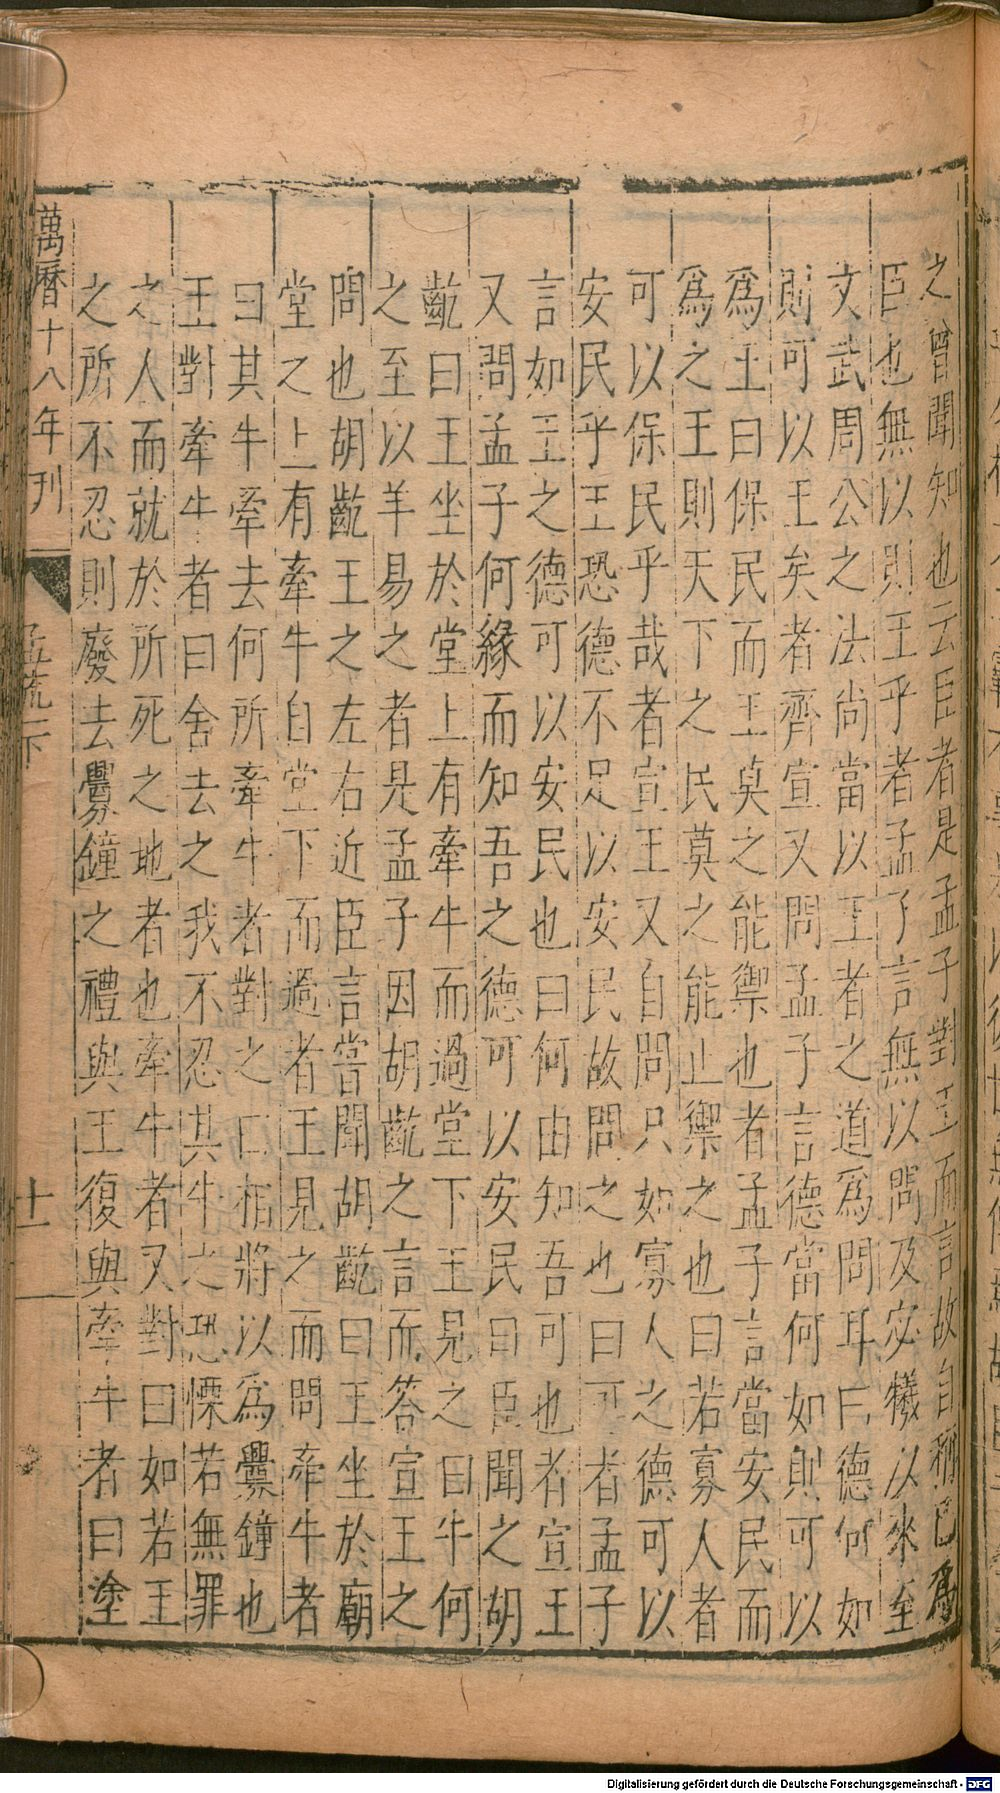 之曾聞知也云臣者是孟子對王而言故自稱已爲
臣也無以則王乎者孟子言無以問及宓犧以來至
文武周公之法尚當以王者之道爲問耳曰德何如
則可以王矣者齊宣又問孟子言德當何如則可以
爲王曰保民而王莫之能禦也者孟子言當安民而
爲之王則天下之民莫之能止禦之也曰若寡人者
可以保民乎哉者宣王又自問只如寡人之德可以
安民乎王恐德不足以安民故問之也曰可者孟子
言如王之德可以安民也曰何由知吾可也者宣王
又問孟子何緣而知吾之德可以安民曰臣聞之胡
齕曰王坐於堂上有牽牛而過堂下王見之曰牛何
之至以羊易之者是孟子因胡齕之言而答宣王之
問也胡齕王之左右近臣言嘗聞胡齕曰王坐於廟
堂之上有牽牛自堂下而過者王見之而問牽牛者
曰其牛牽去何所牽牛者對之曰相將以爲釁鐘也
王對牽牛者曰舍去之我不忍其牛之恐慄若無罪
之人而就於所死之地者也牽牛者又對曰如若王
之所不忍則廢去釁鐘之禮與王復與牽牛者曰塗
萬曆十八年刊
孟疏一下
十一
Digitalisierung gefördert durch die Deutsche Forschungsgemeinschaft - DFG